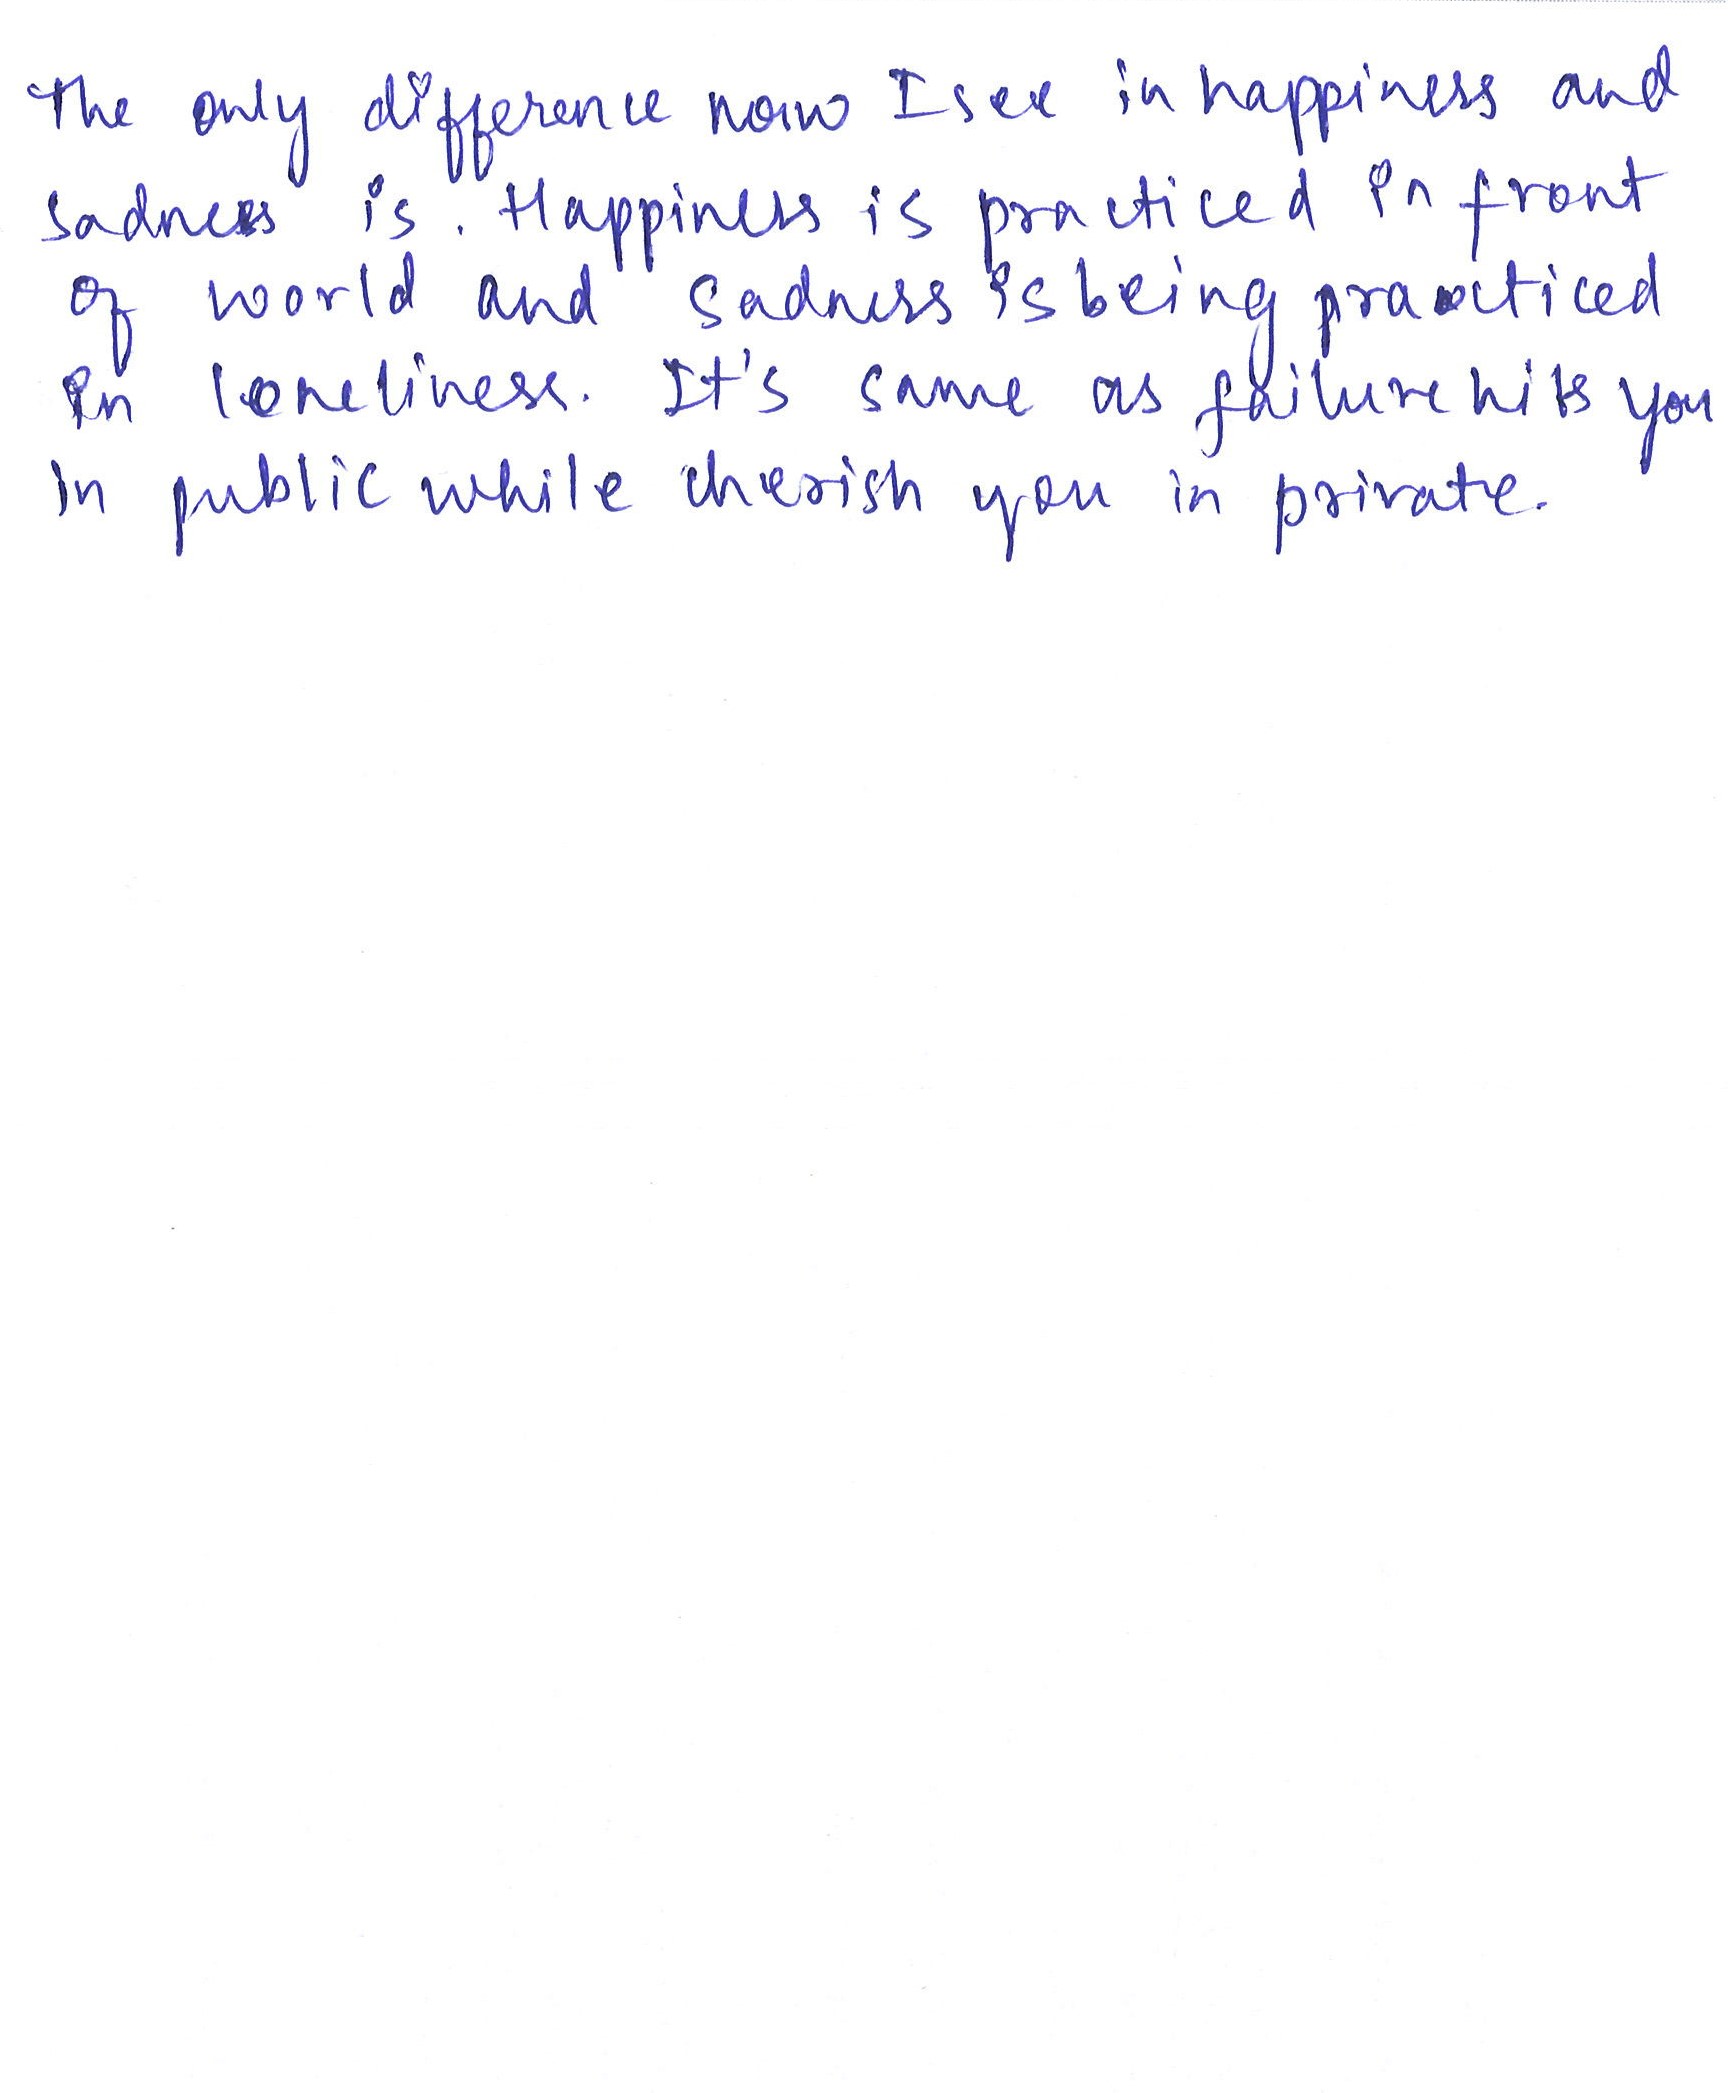 The only difference now I see in happiness and
sadness is. Happiness is practiced in front
of world and sadness is being practiced
in loneliness. It's same as failure hits you
in public while cherish you in private.